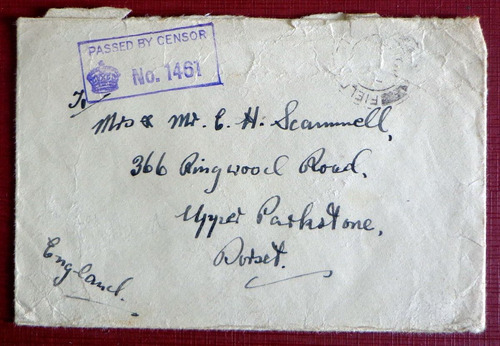 PASSED BY CENSOR
No. 1461
To
Mrs & Mr. C. H. Scammell,
366 Ringwood Road,
Upper Parkstone,
Dorset.
England.
FIEL